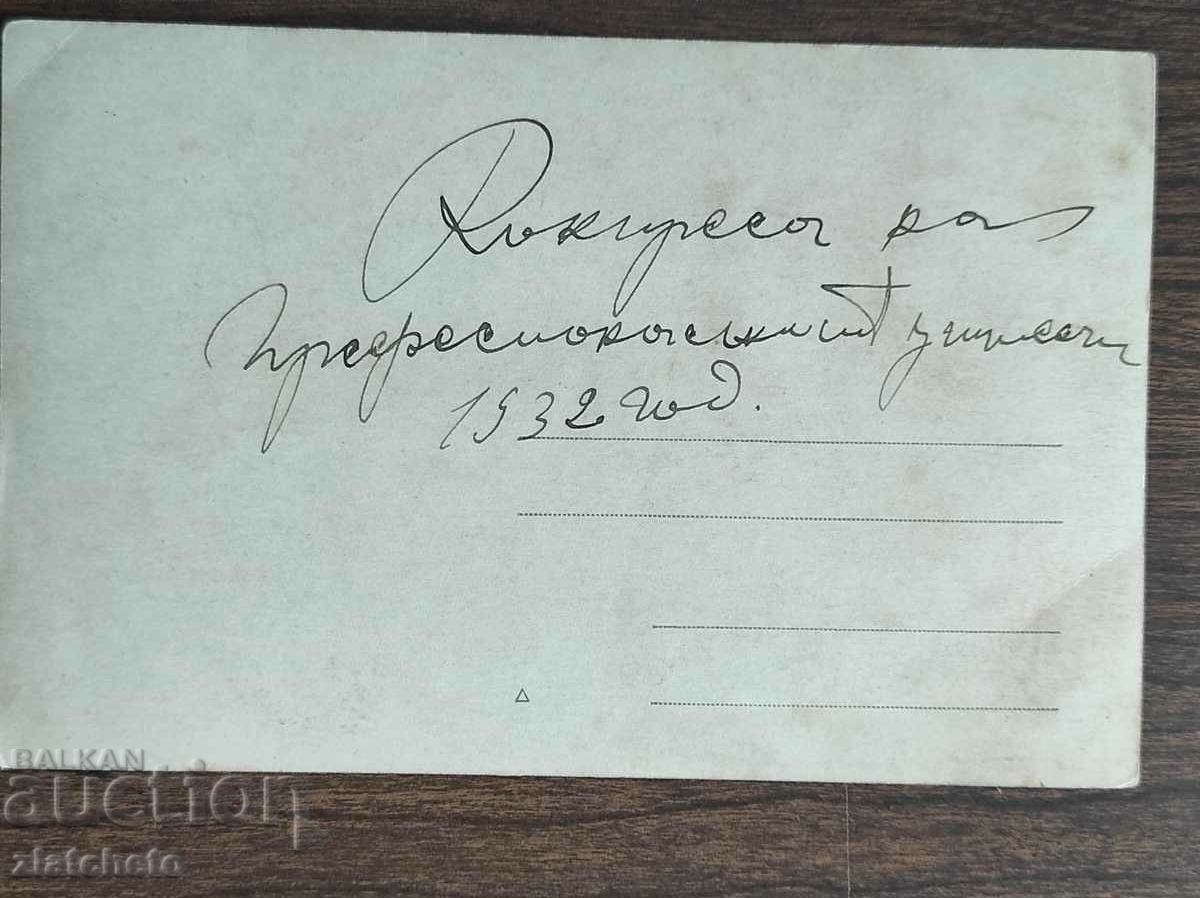 Конгреса на
професионалнит
1932 год.
BALKAN
auction
zlatcheto